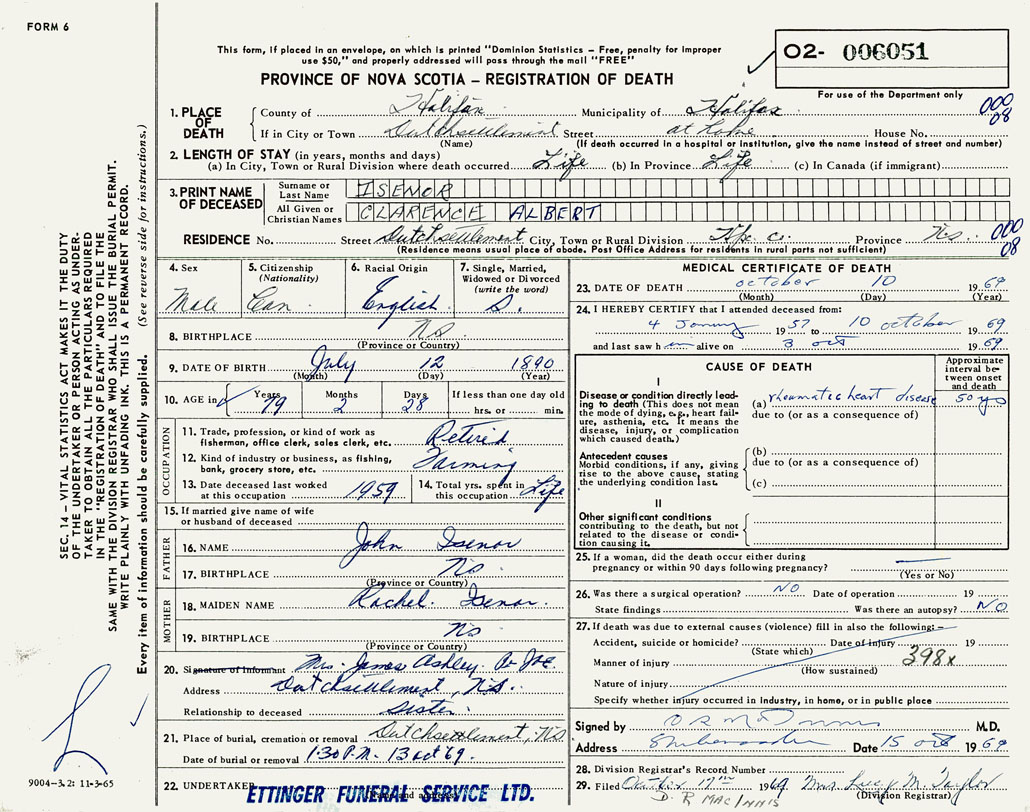 FORM 6
This form, if placed in an envelope, on which is printed "Dominion Statistics – Free, penalty for improper
use $50," and properly addressed will pass through the mail "FREE"
PROVINCE OF NOVA SCOTIA – REGISTRATION OF DEATH
O2- 006051
For use of the Department only
1. PLACE OF DEATH County of Halifax Municipality of Halifax 000 08
If in City or Town Dutchsettlement Street at home House No.
(Name) (If death occurred in a hospital or institution, give the name instead of street and number)
2. LENGTH OF STAY (in years, months and days)
(a) In City, Town or Rural Division where death occurred Life (b) In Province Life (c) In Canada (if immigrant)
3. PRINT NAME OF DECEASED Surname or Last Name ISENOR
All Given or Christian Names CLARENCE ALBERT
RESIDENCE No. Street Dutchsettlement City, Town or Rural Division Hfx. Co. Province N.S. 000 08
(Residence means usual place of abode. Post Office Address for residents in rural parts not sufficient)
4. Sex Male
5. Citizenship (Nationality) Can.
6. Racial Origin English
7. Single, Married, Widowed or Divorced (write the word) S.
8. BIRTHPLACE NS
(Province or Country)
9. DATE OF BIRTH July 12 1890
(Month) (Day) (Year)
10. AGE in Years 79 Months 2 Days 28 If less than one day old hrs. or min.
OCCUPATION
11. Trade, profession, or kind of work as fisherman, office clerk, sales clerk, etc. Retired
12. Kind of industry or business, as fishing, bank, grocery store, etc. Farming
13. Date deceased last worked at this occupation 1959
14. Total yrs. spent in this occupation Life
15. If married give name of wife or husband of deceased
FATHER
16. NAME John Isenor
17. BIRTHPLACE NS
(Province or Country)
MOTHER
18. MAIDEN NAME Rachel Isenor
19. BIRTHPLACE NS
(Province or Country)
20. Signature of informant Mrs. James Ashley
Address Dutchsettlement, N.S.
Relationship to deceased Sister
21. Place of burial, cremation or removal Dutchsettlement, NS
Date of burial or removal 1:30 P.M. 13 Oct 69.
22. UNDERTAKER ETTINGER FUNERAL SERVICE LTD.
MEDICAL CERTIFICATE OF DEATH
23. DATE OF DEATH October 10 1969
(Month) (Day) (Year)
24. I HEREBY CERTIFY that I attended deceased from
4 1957 to 10 October 1969
and last saw him alive on 3 Oct 1969.
CAUSE OF DEATH
Approximate interval between onset and death
I
Disease or condition directly leading to death (This does not mean the mode of dying, e.g., heart failure, asthenia, etc. It means the disease, injury, or complication which caused death.)
(a) rheumatic heart disease 50 yrs
due to (or as a consequence of)
Antecedent causes
Morbid conditions, if any, giving rise to the above cause, stating the underlying condition last.
(b)
due to (or as a consequence of)
(c)
II
Other significant conditions
contributing to the death, but not related to the disease or condition causing it.
25. If a woman, did the death occur either during pregnancy or within 90 days following pregnancy?
(Yes or No)
26. Was there a surgical operation? NO Date of operation 19
State findings Was there an autopsy? NO
27. If death was due to external causes (violence) fill in also the following: –
Accident, suicide or homicide? Date of injury 19
(State which)
Manner of injury 398x
(How sustained)
Nature of injury
Specify whether injury occurred in industry, in home, or in public place
Signed by M.D.
Address Shubenacadie Date 15 Oct 1969
28. Division Registrar's Record Number
29. Filed October 17th 1969 Mrs. Lucy M. Taylor
(Division Registrar)
D. R. MAC INNIS
SEC. 14 – VITAL STATISTICS ACT MAKES IT THE DUTY
OF THE UNDERTAKER OR PERSON ACTING AS UNDER-
TAKER TO OBTAIN ALL THE PARTICULARS REQUIRED
IN THE "REGISTRATION OF DEATH" AND TO FILE THE
SAME WITH THE DIVISION REGISTRAR WHO SHALL ISSUE THE BURIAL PERMIT.
WRITE PLAINLY WITH UNFADING INK. THIS IS A PERMANENT RECORD.
Every item of information should be carefully supplied. (See reverse side for instructions.)
9004-3.2: 11-3-65